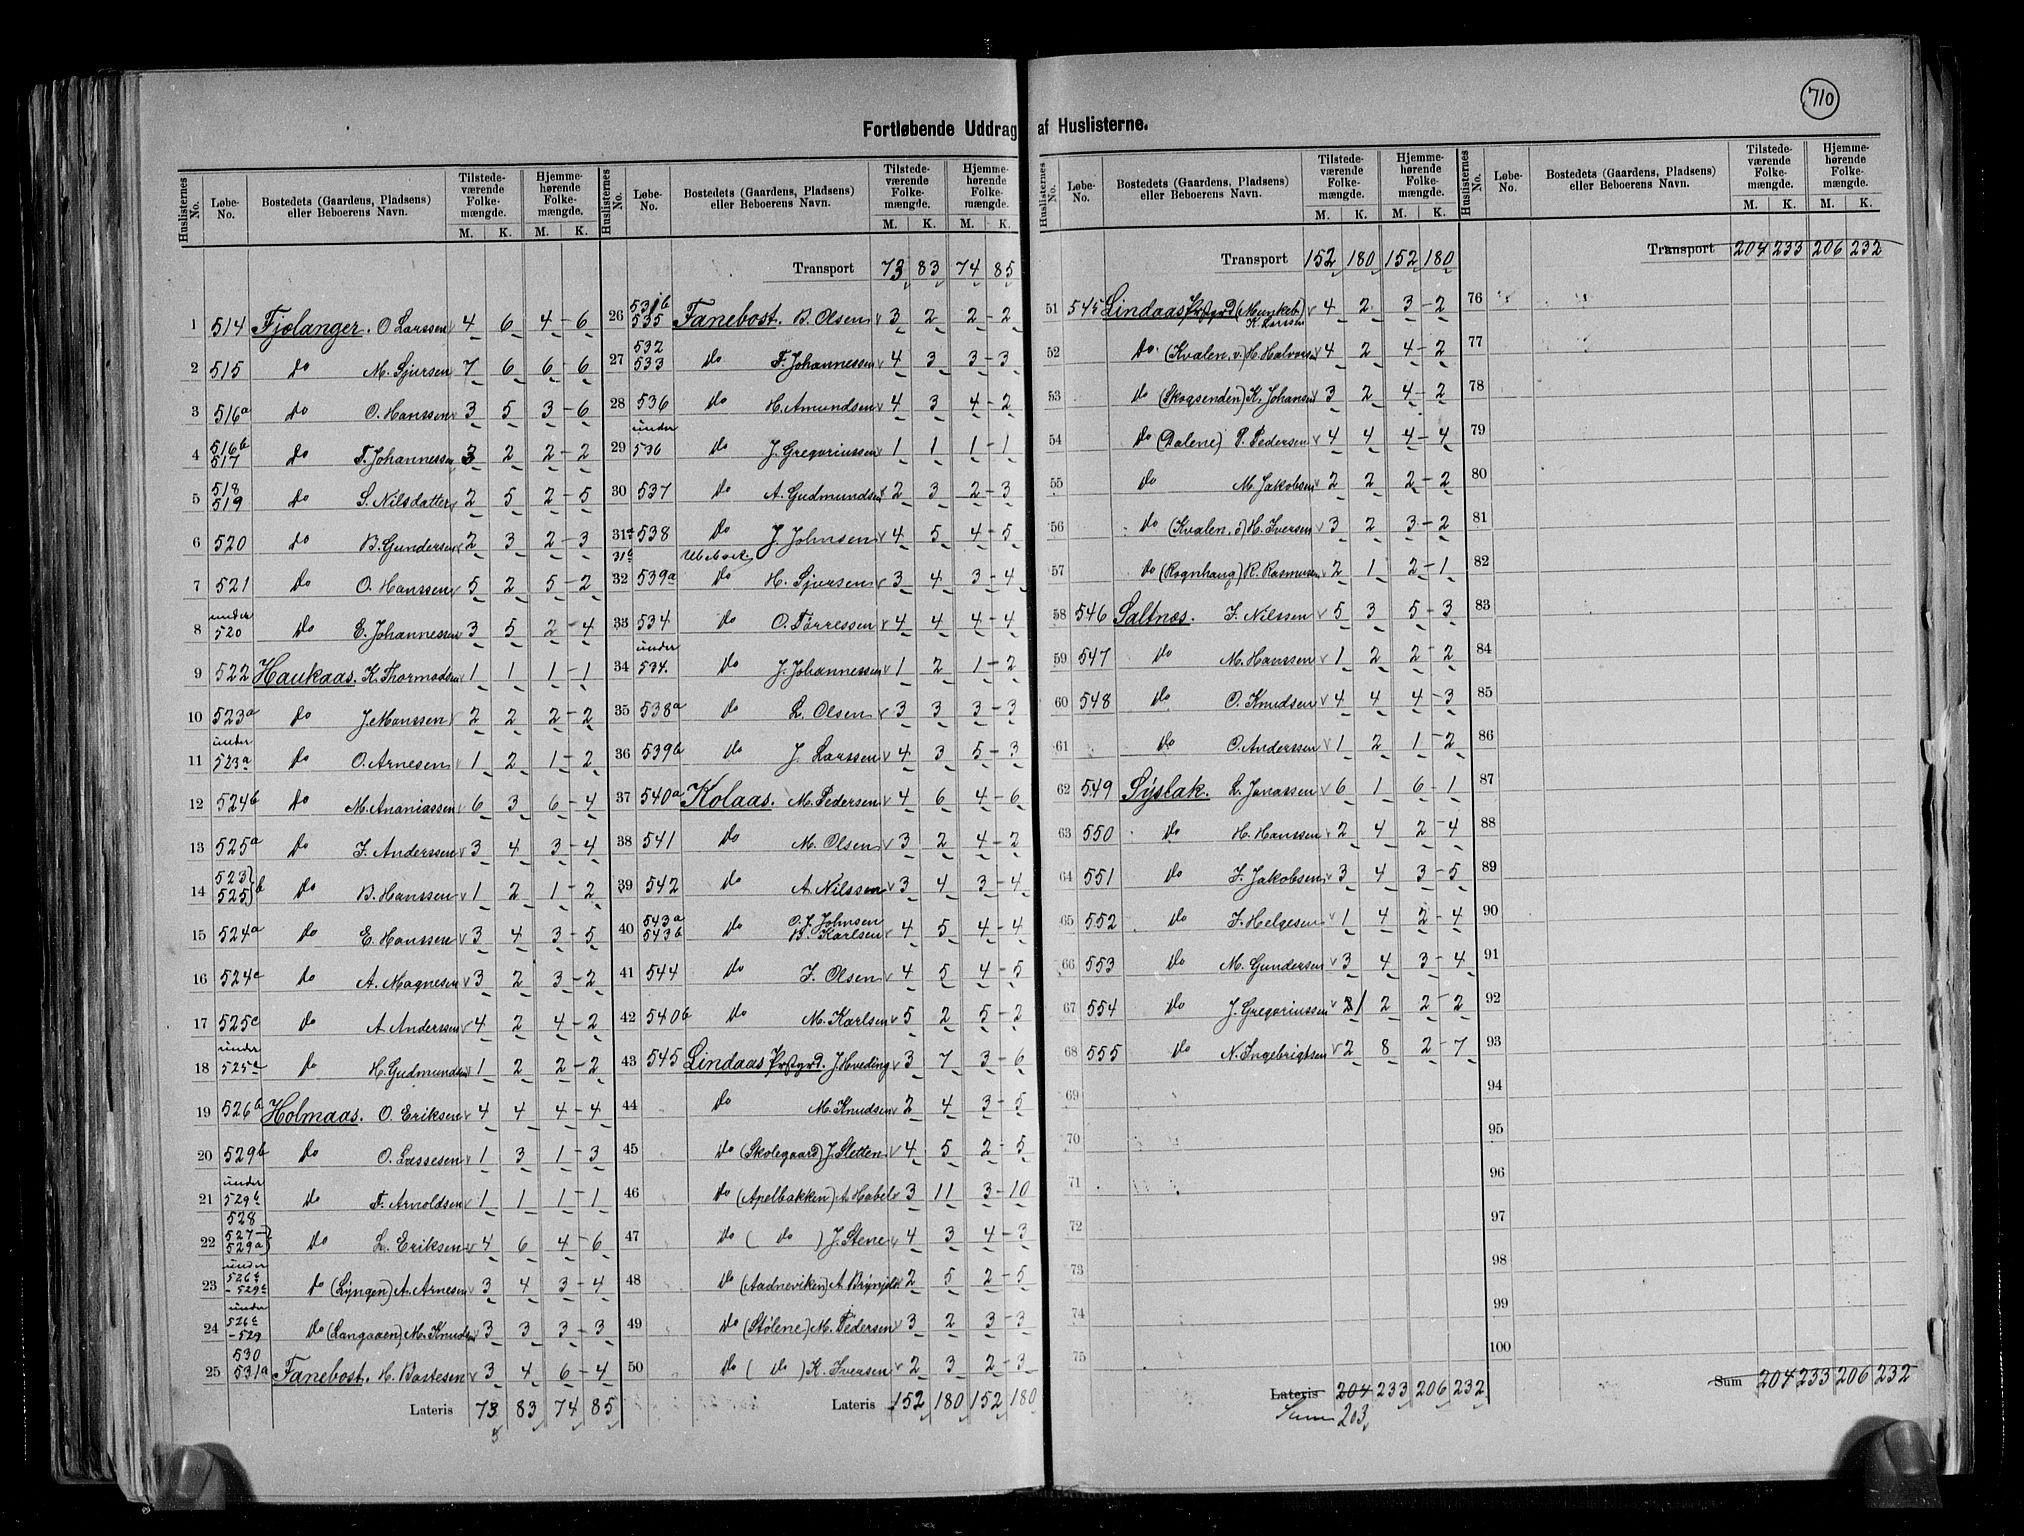 710
Fortløbende Uddrag af Huslisterne.
Huslisternes No. Løbe-No. Bostedets (Gaardens, Pladsens) eller Beboerens Navn. Tilstede-værende Folke-mængde. M. K. Hjemme-hørende Folke-mængde. M. K.
1 514 Fjolanger. O Larssen 4 6 4 - 6
2 515 do M. Sjursen 7 6 6 - 6
3 516a do O. Hanssen 3 5 3 - 6
4 516b 517 do T. Johannessen 3 2 2 - 2
5 518 519 do S. Nilsdatter 2 5 2 - 5
6 520 do B. Gundersen 2 3 2 - 3
7 521 do O. Hanssen 5 2 5 - 2
8 under 520 do E. Johannessen 3 5 2 - 4
9 522 Haukaas. K. Thormodsen 1 1 1 - 1
10 523a do J. Monssen 2 2 2 - 2
11 under 523a do O. Arnesen 1 2 1 - 2
12 524b do M. Ananiassen 6 3 6 - 4
13 525a do I. Anderssen 3 4 3 - 4
14 523 525 b do B. Hanssen 1 2 1 - 2
15 524a do E. Hanssen 3 4 3 - 5
16 524c do A. Magnesen 3 2 3 - 2
17 525c do A. Anderssen 4 2 4 - 2
18 under 525c do H. Gudmundsen 1 2 2 - 2
19 526b Holmaas. O. Eriksen 4 4 4 - 4
20 529b do O. Lassesen 1 3 1 - 3
21 under 529b do T. Arnoldsen 1 1 1 - 1
22 528 527- 529a do L. Eriksen 4 6 4 - 6
23 under 526c - 529c do (Lyngen) A. Arnesen 3 4 3 - 4
24 under 526c - 529 do (Langaaen) M. Knudsen 3 3 3 - 3
25 530 531a Fanebost. H. Bastesen 3 4 6 - 4
Lateris 73 83 74 85
Huslisternes No. Løbe-No. Bostedets (Gaardens, Pladsens) eller Beboerens Navn. Tilstede-værende Folke-mængde. M. K. Hjemme-hørende Folke-mængde. M. K.
Transport 73 83 74 85
26 531b 535 Fanebost. B. Olsen 3 2 2 - 2
27 532 533 do T. Johannessen 4 3 3 - 3
28 536 do H. Amundsen 4 3 4 - 2
29 under 536 do J. Gregoriussen 1 1 1 - 1
30 537 do A. Gudmundsen 2 3 2 - 3
31a 538 do J. Johnsen 4 5 4 - 5
31b Ubeboet
32 539a do H. Sjursen 3 4 3 - 4
33 534 do O. Torressen 4 4 4 - 4
34 under 534. do J. Johannessen 1 2 1 - 2
35 538a do L. Olsen 3 3 3 - 3
36 539b do J. Larssen 4 3 5 - 3
37 540a Kolaas. M. Pedersen 4 6 4 - 6
38 541 do M. Olsen 3 2 4 - 2
39 542 do A. Nilssen 3 4 3 - 4
40 543a 543b do O. J. Johnsen Karlsen 4 5 4 - 4
41 544 do I. Olsen 4 5 4 - 5
42 540b do M. Karlsen 5 2 5 - 2
43 545 Lindaas Prstgrd. J. Hveding 3 7 3 - 6
44 do M. Knudsen 2 4 3 - 5
45 do (Skolegaard) J. Sletten 4 5 2 - 5
46 do (Apelbakken) A. Habel 3 11 3 - 10
47 do ( do ) J. Stene 4 3 4 - 3
48 do (Aadneviken) A Brynjels 2 5 2 - 5
49 do (Stølene) M. Pedersen 3 2 3 - 3
50 do ( do ) K. Iversen 2 3 2 - 3
Lateris 152 180 152 180
Huslisternes No. Løbe-No. Bostedets (Gaardens, Pladsens) eller Beboerens Navn. Tilstede-værende Folke-mængde. M. K. Hjemme-hørende Folke-mængde. M. K.
Transport 152 180 152 180
51 545 Lindaas Prstgrd (Munkeb.) K. Larssen 4 2 3 - 2
52 do. (Kvalen, v.) H. Halvorsen 4 2 4 - 2
53 do (Skogsenden) K. Johansen 3 2 4 - 2
54 do (Dalene) P. Pedersen 4 4 4 - 4
55 do M. Jakobsen 2 2 2 - 2
56 do (Kvalen, ø) H. Iversen 3 2 3 - 2
57 do (Rognhaug) R. Rasmussen 2 1 2 - 1
58 546 Saltnes. I. Nilssen 5 3 5 - 3
59 547 do M. Hanssen 1 2 2 - 2
60 548 do O. Knudsen 4 4 4 - 3
61 do O. Anderssen 1 2 1 - 2
62 549 Syslak. L. Jonassen 6 1 6 - 1
63 550 do H. Hanssen 2 4 2 - 4
64 551 do I. Jakobsen 3 4 3 - 5
65 552 do I. Helgesen 1 4 2 - 4
66 553 do M. Gundersen 3 4 3 - 4
67 554 do J. Gregoriussen 1 2 2 - 2
68 555 do N. Ingebrigtsen 2 8 2 - 7
69
70
71
72
73
74
75
Lateris 204 233 206 232
Sum 203
Huslisternes No. Løbe-No. Bostedets (Gaardens, Pladsens) eller Beboerens Navn. Tilstede-værende Folke-mængde. M. K. Hjemme-hørende Folke-mængde. M. K.
Transport 204 233 206 232
76
77
78
79
80
81
82
83
84
85
86
87
88
89
90
91
92
93
94
95
96
97
98
99
100
Sum 204 233 206 232